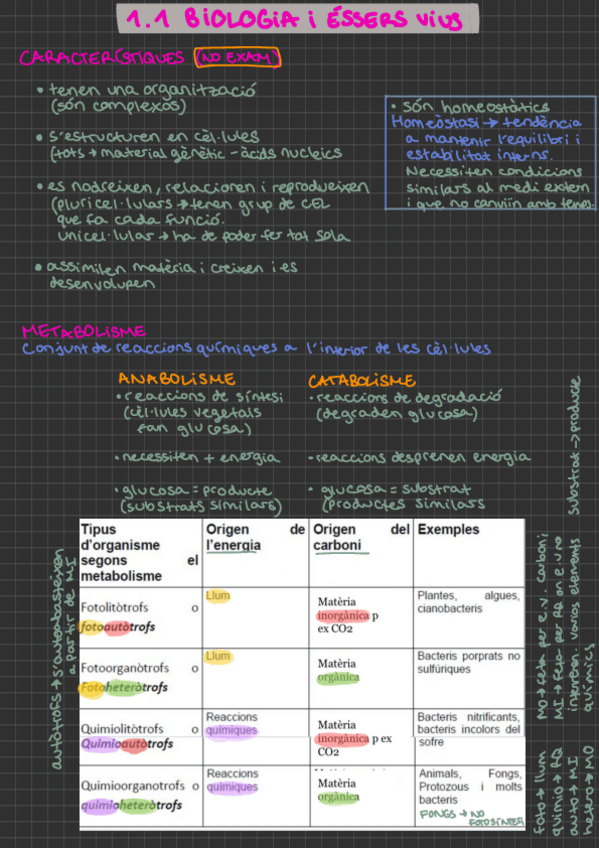 1.1 BIOLOGIA i ÉSSERS VIUS
CARACTERÍSTIQUES (NO EXAM)
• tenen una organització
(són complexos)
• s'estructuren en cèl·lules
(tots → material gènètic - àcids nucleics
• es nodreixen, relacionen i reprodueixen
(pluricel·lulars → tenen grup de CEL
que fa cada funció.
unicel·lular → ha de poder fer tot sola
• assimilen matèria i creixen i es
desenvolupen
• són homeostàtics
Homeòstasi → tendència
a mantenir l'equilibri i
estabilitat interns.
Necessiten condicions
similars al medi extern
i que no canviïn amb temps.
METABOLISME
Conjunt de reaccions químiques a l'interior de les cèl·lules
ANABOLISME
• reaccions de síntesi
(cèl·lules vegetals
fan glucosa)
• necessiten + energia
• glucosa = producte
(substrats similars)
CATABOLISME
• reaccions de degradació
(degraden glucosa)
• reaccions desprenen energia
• glucosa = substrat
(productes similars
substrat → producte
Tipus d'organisme segons el metabolisme
Origen de l'energia
Origen del carboni
Exemples
Fotolitòtrofs o
fotoautòtrofs
Llum
Matèria
inorgànica p
ex CO2
Plantes, algues,
cianobacteris
Fotoorganòtrofs o
Fotoheteròtrofs
Llum
Matèria
orgànica
Bacteris porprats no
sulfúriques
Quimiolitòtrofs o
Quimioautòtrofs
Reaccions
químiques
Matèria
inorgànica p ex
CO2
Bacteris nitrificants,
bacteris incolors del
sofre
Quimioorganotrofs o
químioheteròtrofs
Reaccions
químiques
Matèria
orgànica
Animals, Fongs,
Protozous i molts
bacteris
FONGS → NO
FOTOSÍNTESI
autòtrofs → s'autoabasteixen
a partir de MI
MO → feta per e.v. Carboni
MI → feta per RQ on e.v no
interfereixen. varios elements
químics
foto → llum
quimio → RQ
auto → MI
hetero → MO